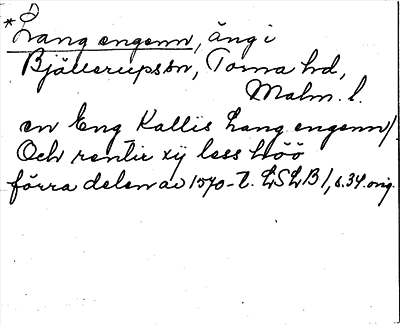 *Lang engenn, äng i
Bjällerupssn, Torna hd,
Malm. l.
en Eng Kallis Lang engenn/
Och rentir xij less höö
förra delen av 1570-t. LSLB 1, s. 34. orig.